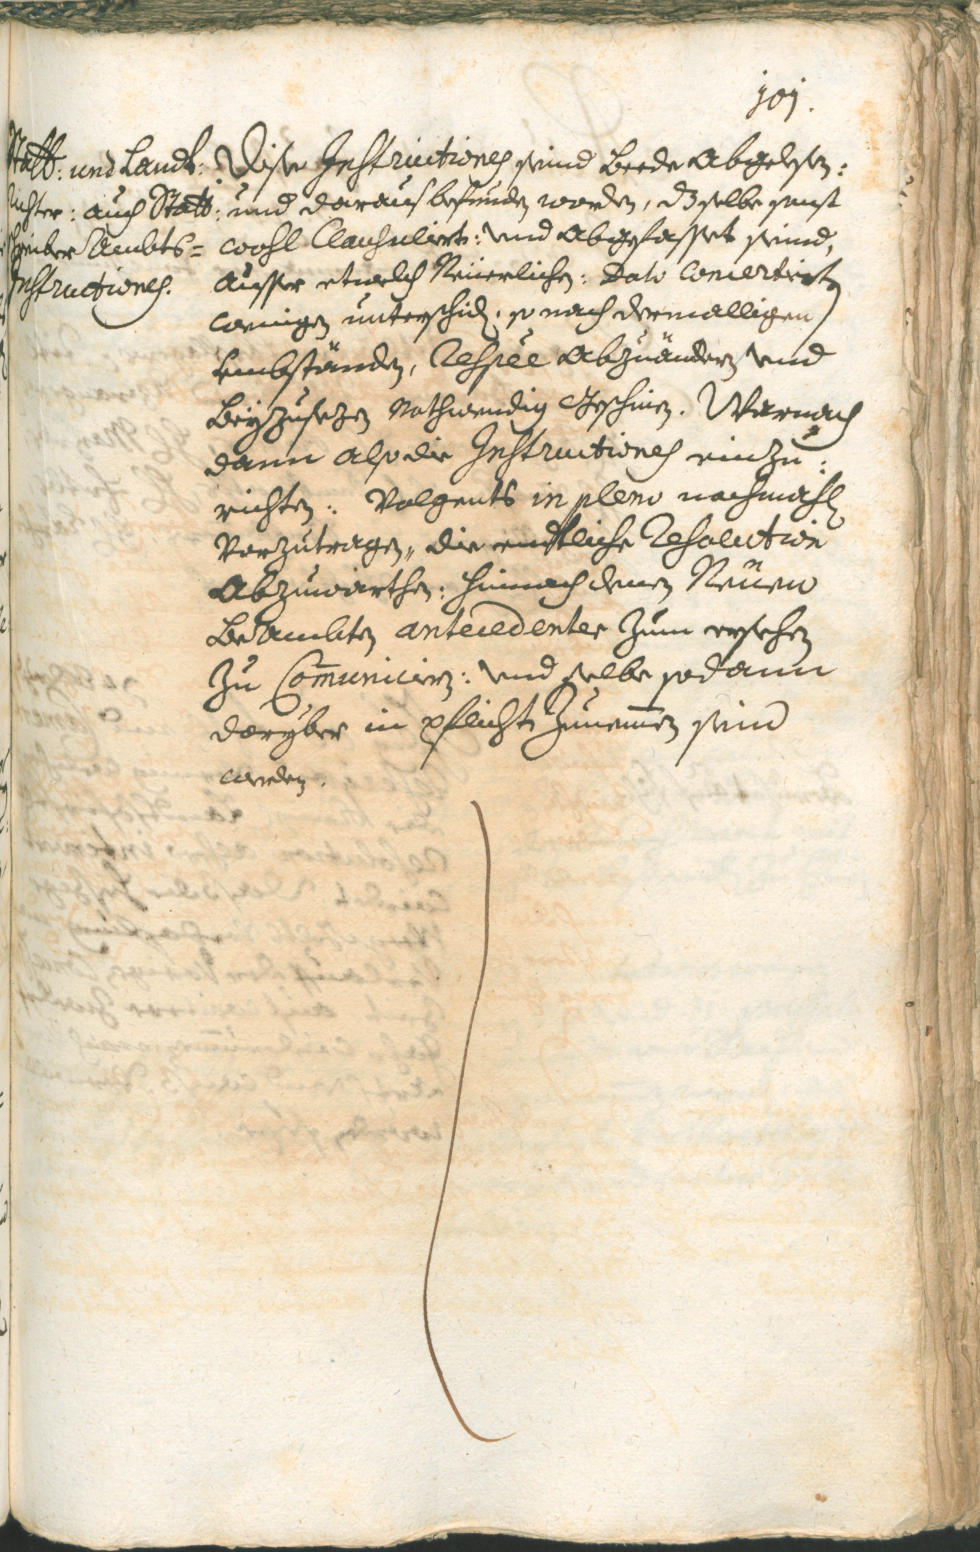 101.
Statt: und Landt:
richter: auch Statt:
schreiber Ambts=
Instructiones.
Dise Instructiones seind beede abgelesen:
und daraus befunden worden, dz selbe sonst
wohl Clausuliert: und abgefasset seind,
ausser etwelch Neüerlichen: dato
wenigen unterschid, so nach dermalligen
umbständen, respée abzuändern und
beyzusezen nothwendig geschinen. Warnach
dann also die Instructiones einzu:
richten: volgents in pleno nochmahls
vorzutragen, die endtliche Resolution
abzuwarthen: hinnach denen Neüen
beambten antecedenter zum ersehen
zu Com̄unicirn: und selbe sodann
daryber in pflicht zunem̄en sein
werden.